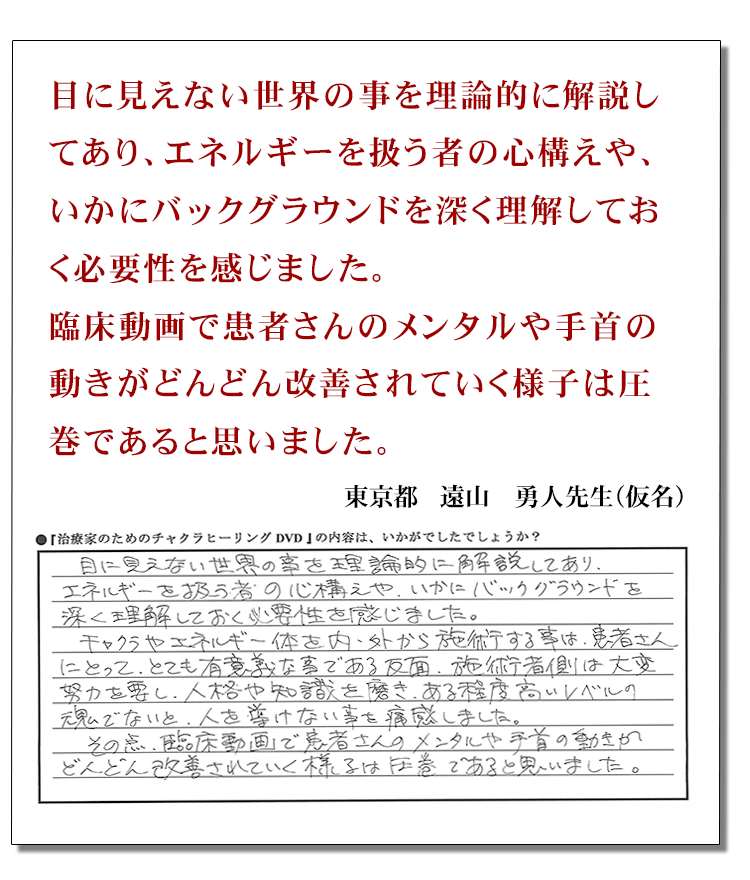 目に見えない世界の事を理論的に解説し
てあり、エネルギーを扱う者の心構えや、
いかにバックグラウンドを深く理解してお
く必要性を感じました。
臨床動画で患者さんのメンタルや手首の
動きがどんどん改善されていく様子は圧
巻であると思いました。
東京都　遠山　勇人先生（仮名）
●『治療家のためのチャクラヒーリングDVD』の内容は、いかがでしたでしょうか？
目に見えない世界の事を理論的に解説してあり、
エネルギーを扱う者の心構えや、いかにバックグラウンドを
深く理解しておく必要性を感じました。
チャクラやエネルギー体を内・外から施術する事は、患者さん
にとって、とても有意義な事である反面、施術者側は大変
努力を要し、人格や知識を磨き、ある程度高いレベルの
魂でないと、人を導けない事を痛感しました。
その点、臨床動画で患者さんのメンタルや手首の動きが
どんどん改善されていく様子は圧巻であると思いました。